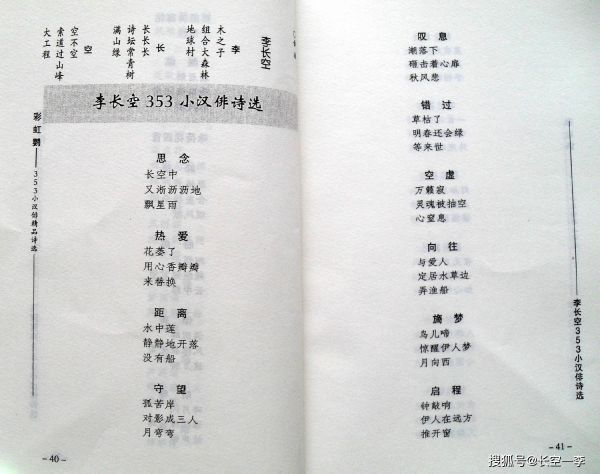 李长空
李
木之子
组合大森林
地球村
长
长长长
诗坛常青树
满山绿
空
空不空
索道过山峰
大工程
李长空353小汉俳诗选
彩虹鹦——353小汉俳精品诗选
思念
长空中
又淅沥沥地
飘星雨
热爱
花萎了
用心香瓣瓣
来替换
距离
水中莲
静静地开落
没有船
守望
孤苦岸
对影成三人
月弯弯
-40-
叹息
潮落下
砸击着心扉
秋风悲
错过
草枯了
明春还会绿
等来世
空虚
万籁寂
灵魂被抽空
心窒息
向往
与爱人
定居水草边
弄渔船
旖梦
鸟儿啼
惊醒伊人梦
月向西
启程
钟敲响
伊人在远方
推开窗
李长空353小汉俳诗选
-41-
搜狐号@长空一李